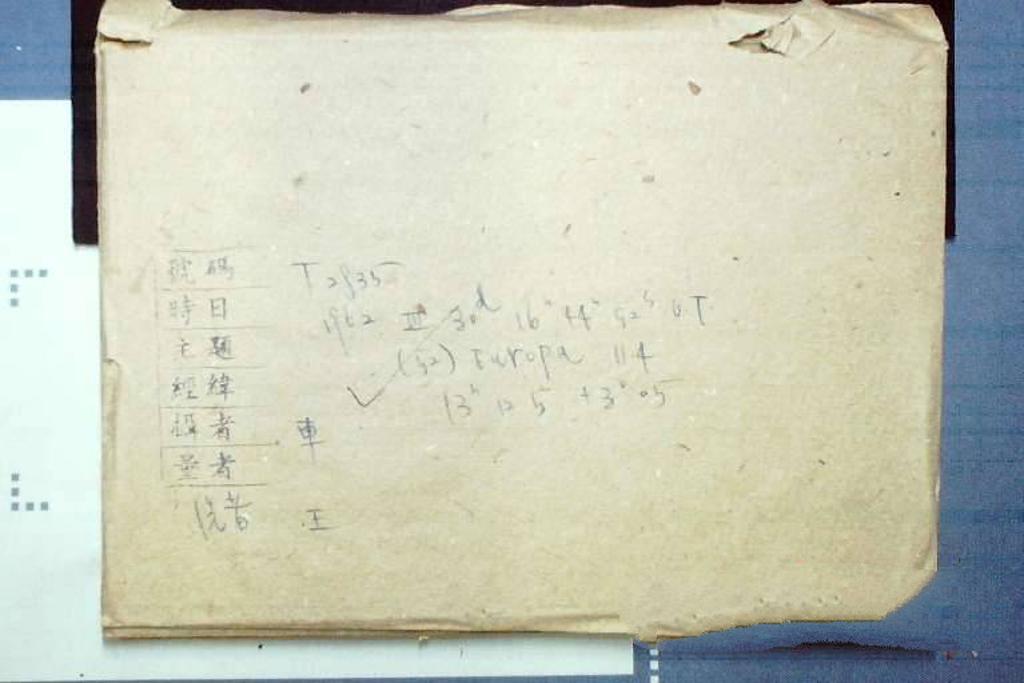 號碼 T 2835
時日 1962 III 30d 16h 44m 52s UT
主題 (52) Europa 114
經緯 13h 12 5 +3° 05
攝者 車
量者
洗者 王